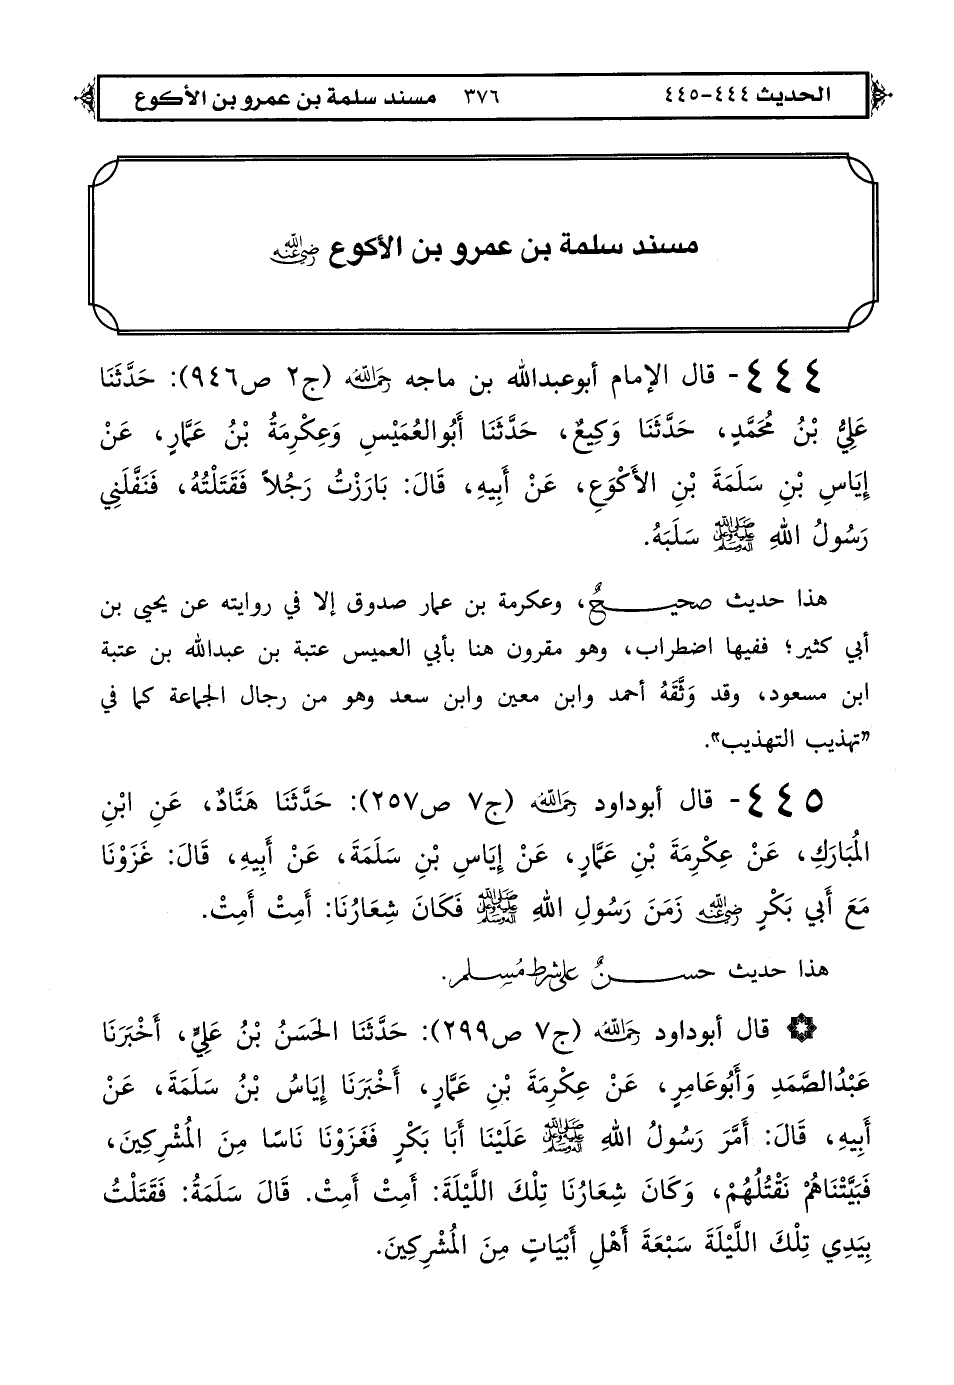 الحديث ٤٤٤-٤٤٥ ٣٧٦ مسند سلمة بن عمرو بن الأكوع
مسند سلمة بن عمرو بن الأكوع رضي الله عنه
٤٤٤- قال الإمام أبوعبدالله بن ماجه رحمه الله (ج٢ ص٩٤٦): حَدَّثَنَا
عَلِيُّ بْنُ مُحَمَّدٍ، حَدَّثَنَا وَكِيعٌ، حَدَّثَنَا أَبُوالعُمَيْسِ وَعِكْرِمَةُ بْنُ عَمَّارٍ، عَنْ
إِيَاسِ بْنِ سَلَمَةَ بْنِ الأَكْوَعِ، عَنْ أَبِيهِ، قَالَ: بَارَزْتُ رَجُلاً فَقَتَلْتُهُ، فَنَفَّلَنِي
رَسُولُ اللهِ ﷺ سَلَبَهُ.
هذا حديث صحيحٌ، وعكرمة بن عمار صدوق إلا في روايته عن يحيى بن
أبي كثير؛ ففيها اضطراب، وهو مقرون هنا بأبي العميس عتبة بن عبدالله بن عتبة
ابن مسعود، وقد وَثَّقَهُ أحمد وابن معين وابن سعد وهو من رجال الجماعة كما في
«تهذيب التهذيب».
٤٤٥- قال أبوداود رحمه الله (ج٧ ص٢٥٧): حَدَّثَنَا هَنَّادٌ، عَنِ ابْنِ
المُبَارَكِ، عَنْ عِكْرِمَةَ بْنِ عَمَّارٍ، عَنْ إِيَاسِ بْنِ سَلَمَةَ، عَنْ أَبِيهِ، قَالَ: غَزَوْنَا
مَعَ أَبِي بَكْرٍ رضي الله عنه زَمَنَ رَسُولِ اللهِ ﷺ فَكَانَ شِعَارُنَا: أَمِتْ أَمِتْ.
هذا حديث حسنٌ على شرط مُسلم.
قال أبوداود رحمه الله (ج٧ ص٢٩٩): حَدَّثَنَا الحَسَنُ بْنُ عَلِيٍّ، أَخْبَرَنَا
عَبْدُالصَّمَدِ وَأَبُوعَامِرٍ، عَنْ عِكْرِمَةَ بْنِ عَمَّارٍ، أَخْبَرَنَا إِيَاسُ بْنُ سَلَمَةَ، عَنْ
أَبِيهِ، قَالَ: أَمَّرَ رَسُولُ اللهِ ﷺ عَلَيْنَا أَبَا بَكْرٍ فَغَزَوْنَا نَاسًا مِنَ المُشْرِكِينَ،
فَبَيَّتْنَاهُمْ نَقْتُلُهُمْ، وَكَانَ شِعَارُنَا تِلْكَ اللَّيْلَةَ: أَمِتْ أَمِتْ. قَالَ سَلَمَةُ: فَقَتَلْتُ
بِيَدِي تِلْكَ اللَّيْلَةَ سَبْعَةَ أَهْلِ أَبْيَاتٍ مِنَ المُشْرِكِينَ.